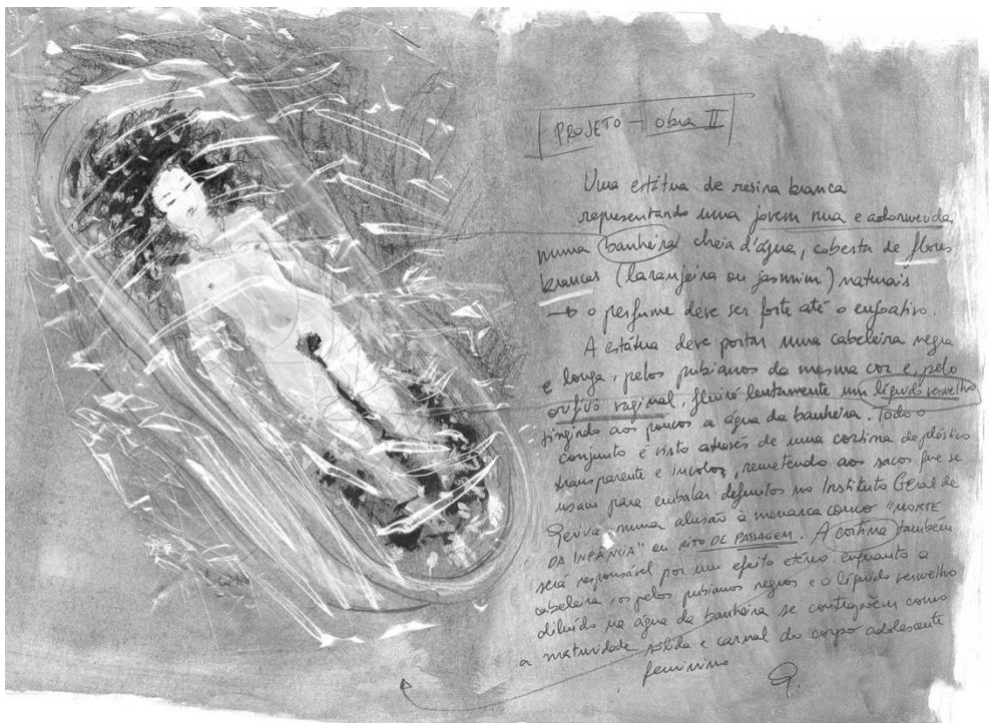 PROJETO — obra II
Uma estátua de resina branca
representando uma jovem nua e adormecida,
numa banheira cheia d'água, coberta de flores
brancas (laranjeira ou jasmim) naturais
→ o perfume deve ser forte até o enjoativo.
A estátua deve portar uma cabeleira negra
e longa, pelos pubianos da mesma cor e, pelo
orifício vaginal, fluirá lentamente um líquido vermelho
tingindo aos poucos a água da banheira. Todo o
conjunto é visto através de uma cortina de plástico
transparente e incolor, remetendo aos sacos que se
usam para embalar defuntos no Instituto Geral de
numa alusão à menarca como "MORTE
DA INFÂNCIA" ou RITO DE PASSAGEM. A cortina também
será responsável por um efeito etéreo enquanto a
cabeleira, os pelos pubianos negros e o líquido vermelho
diluído na água da banheira se contrapõem como
a maturidade sólida e carnal do corpo adolescente
feminino